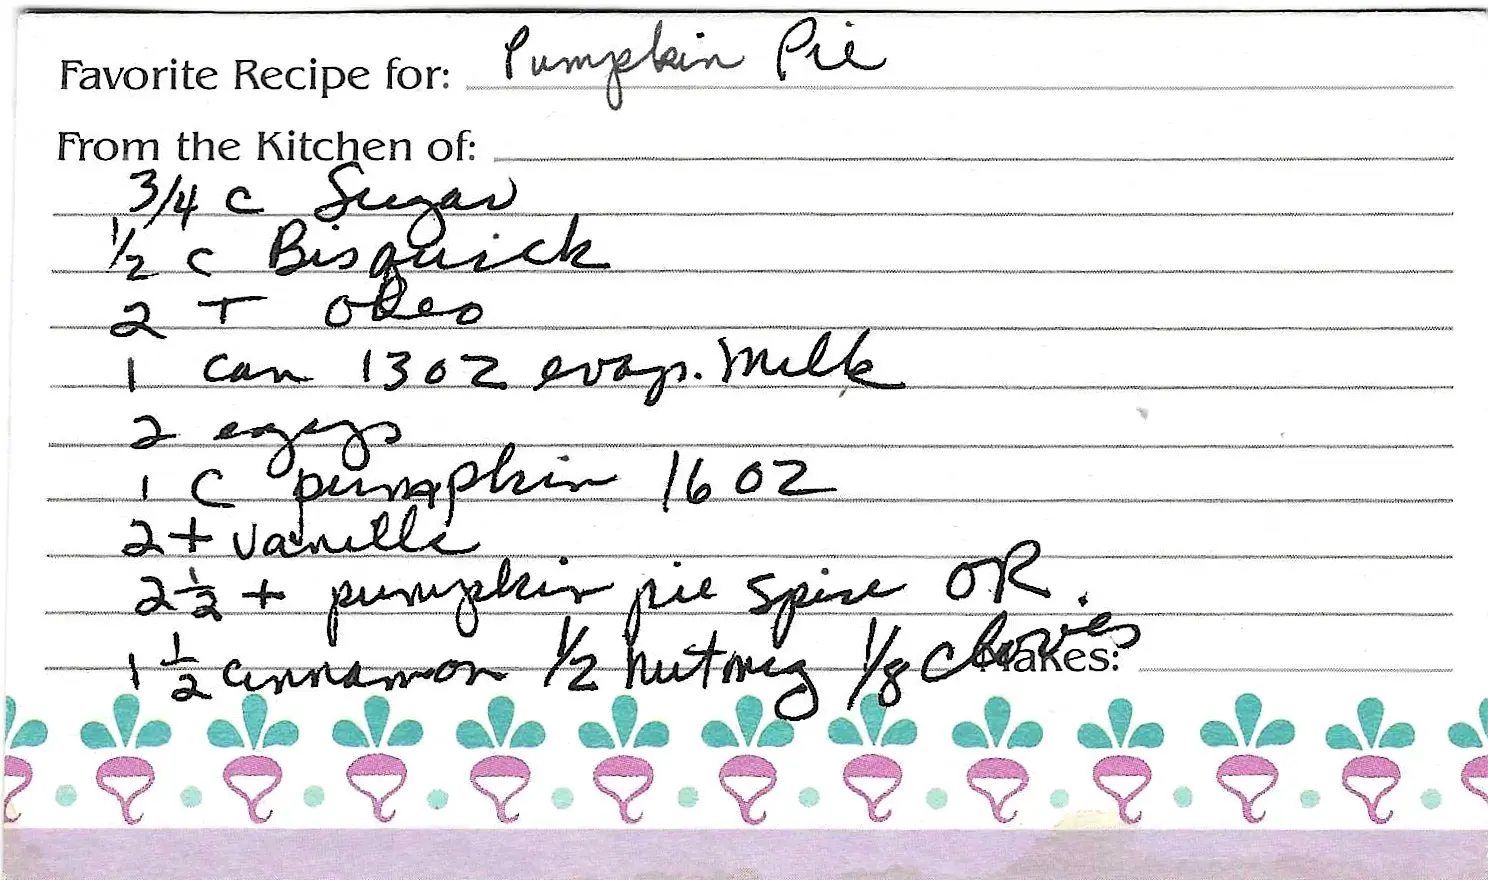 Favorite Recipe for: Pumpkin Pie
From the Kitchen of:
3/4 c Sugar
1/2 c Bisquick
2 T oleo
1 can 13 oz evap. Milk
2 eggs
1 C pumpkin 16 oz
2 t vanilla
2 1/2 t pumpkin pie spice OR.
1 1/2 cinnamon 1/2 nutmeg 1/8 cloves
Makes: